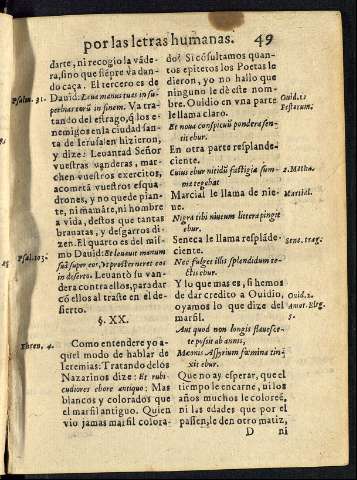 por las letras humanas. 49
darte, ni recogio la vãde-
ra, sino que siẽpre va dan-
do caça. El tercero es de
Dauid: Leua manus tues in su-
perbias eorũ in finem. Va tra-
tando del estrago, q̃ los e-
nemigos en la ciudad san-
ta de Ierusalen hizieron,
y dize: Leuantad Señor
vuestras vanderas, mar-
chen vuestros exercitos,
acometã vuestros esqua-
drones, y no quede pian-
te, ni mamãte, ni hombre
a vida, destos que tantas
brauatas, y desgarros di-
zen. El quarto es del mis-
mo Dauid: Et leuauit manum
suã super eos, vt prosterneret eos
in deserto. Leuantò su van
dera contra ellos, para dar
cõ ellos al traste en el de-
sierto.
§. XX.
Como entendere yo a-
q̃l modo de hablar de
Ieremias: Tratando delos
Nazarinos dize: Et rubi-
cudiores ebore antiquo: Mas
blancos y colorados que
el marfil antiguo. Quien
vio jamas marfil colora-
Psalm. 31.
Psal. 103.
Thren. 4.
do? Si cõsultamos quan-
tos epitetos los Poetas le
dieron, yo no hallo que
ninguno le dè este nom-
bre. Ouidio en vna parte
le llama claro.
Et noua conspicuũ pondera sen-
tit ebur.
En otra parte resplande-
ciente.
Cuius ebur nitidũ fastigia sum-
ma tegebat
Marcial le llama de nie-
ue.
Nigra tibi niueum littera pingit
ebur.
Seneca le llama resplãde-
ciente.
Nec fulget illis splendidum te-
ctis ebur.
Y lo que mas es, si hemos
de dar credito a Ouidio,
oyamos lo que dize del
marfil.
Aut quod non longis flauesce-
re possit ab annis,
Mæonis Assyrium fœmina tin-
xit ebur.
Que no ay esperar, que el
tiempo le encarne, ni los
años muchos le coloreẽ,
ni las edades que por el
passen, le den otro matiz,
D ni
Ouid. 11
Fastorum,
2. Metha.
Martial.
Sene. trag.
Ouid. 2.
Amor. Eleg.
5.